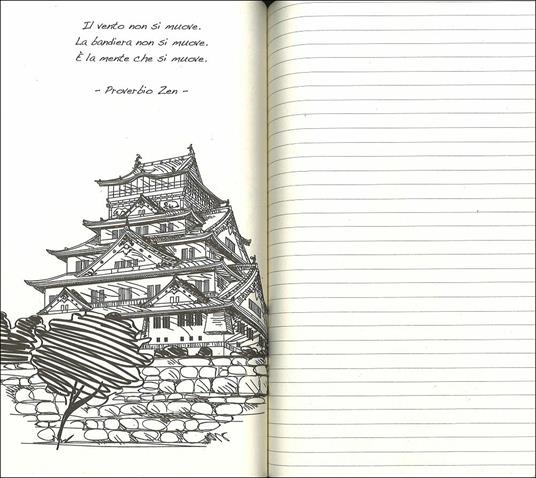 Il vento non si muove.
La bandiera non si muove.
È la mente che si muove.
- Proverbio Zen -